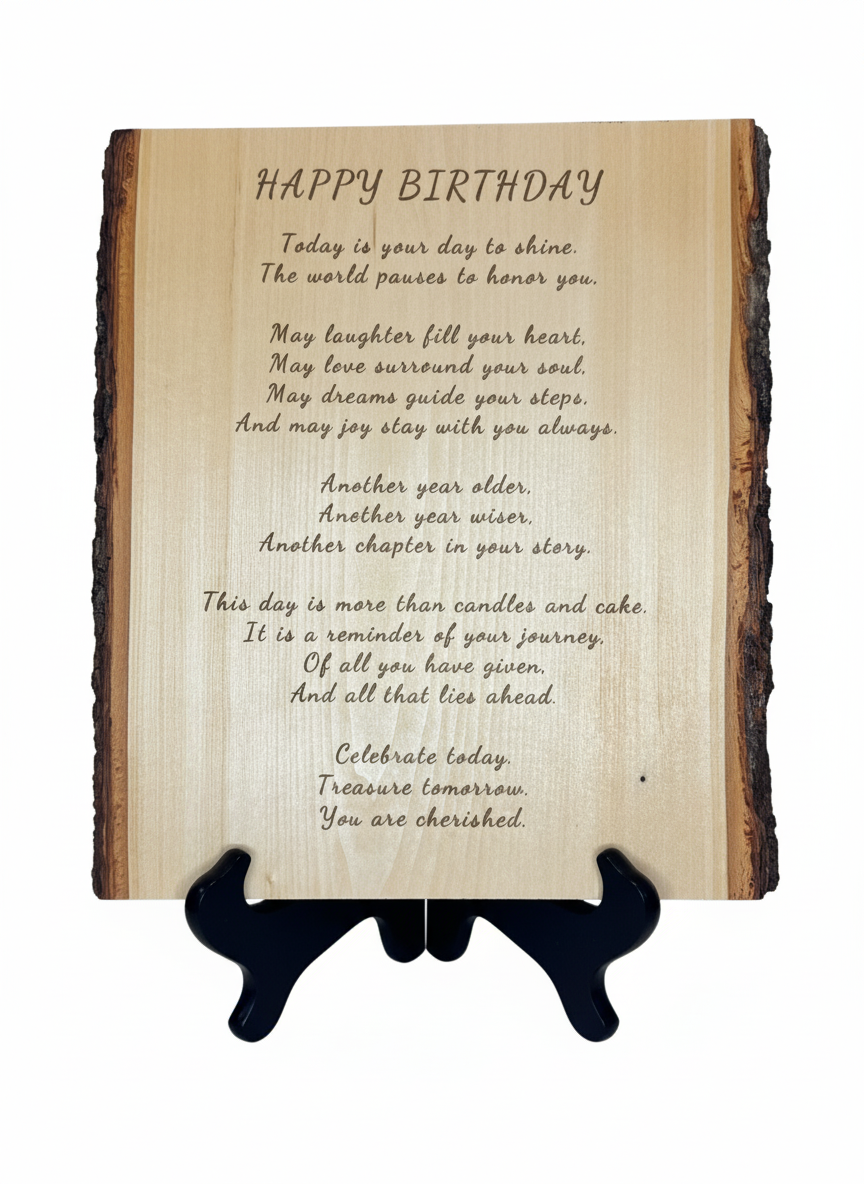 HAPPY BIRTHDAY
Today is your day to shine.
The world pauses to honor you.
May laughter fill your heart,
May love surround your soul,
May dreams guide your steps,
And may joy stay with you always.
Another year older,
Another year wiser,
Another chapter in your story.
This day is more than candles and cake.
It is a reminder of your journey,
Of all you have given,
And all that lies ahead.
Celebrate today.
Treasure tomorrow.
You are cherished.